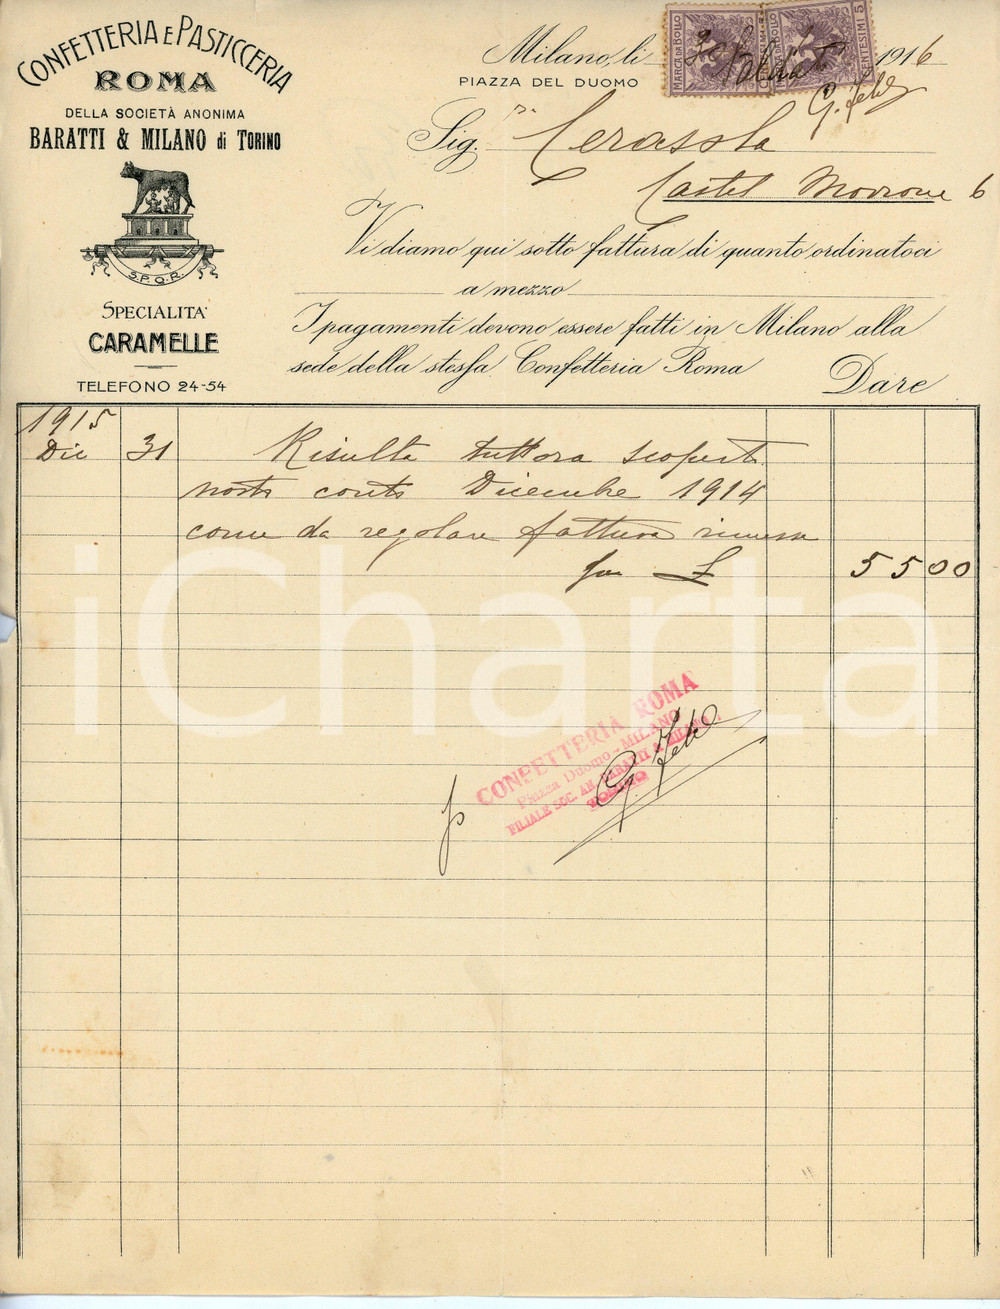 CONFETTERIA E PASTICCERIA
ROMA
DELLA SOCIETÀ ANONIMA
BARATTI & MILANO di TORINO
S.P.Q.R.
SPECIALITA'
CARAMELLE
TELEFONO 24-54
Milano, li 1916
PIAZZA DEL DUOMO
MARCA DA BOLLO
CENTESIMI 5
Sig. Cerassola
Castel Morrone 6
Vi diamo qui sotto fattura di quanto ordinatoci
a mezzo
I pagamenti devono essere fatti in Milano alla
sede della stessa Confetteria Roma
Dare
1915
Dic 31 Risulta tuttora scoperto
nostro conto Dicembre 1914
come da regolare fattura rimessa
per L 55 00
CONFETTERIA ROMA
Piazza Duomo - MILANO
FILIALE SOC. AN. BARATTI & MILANO
TORINO
iCharta